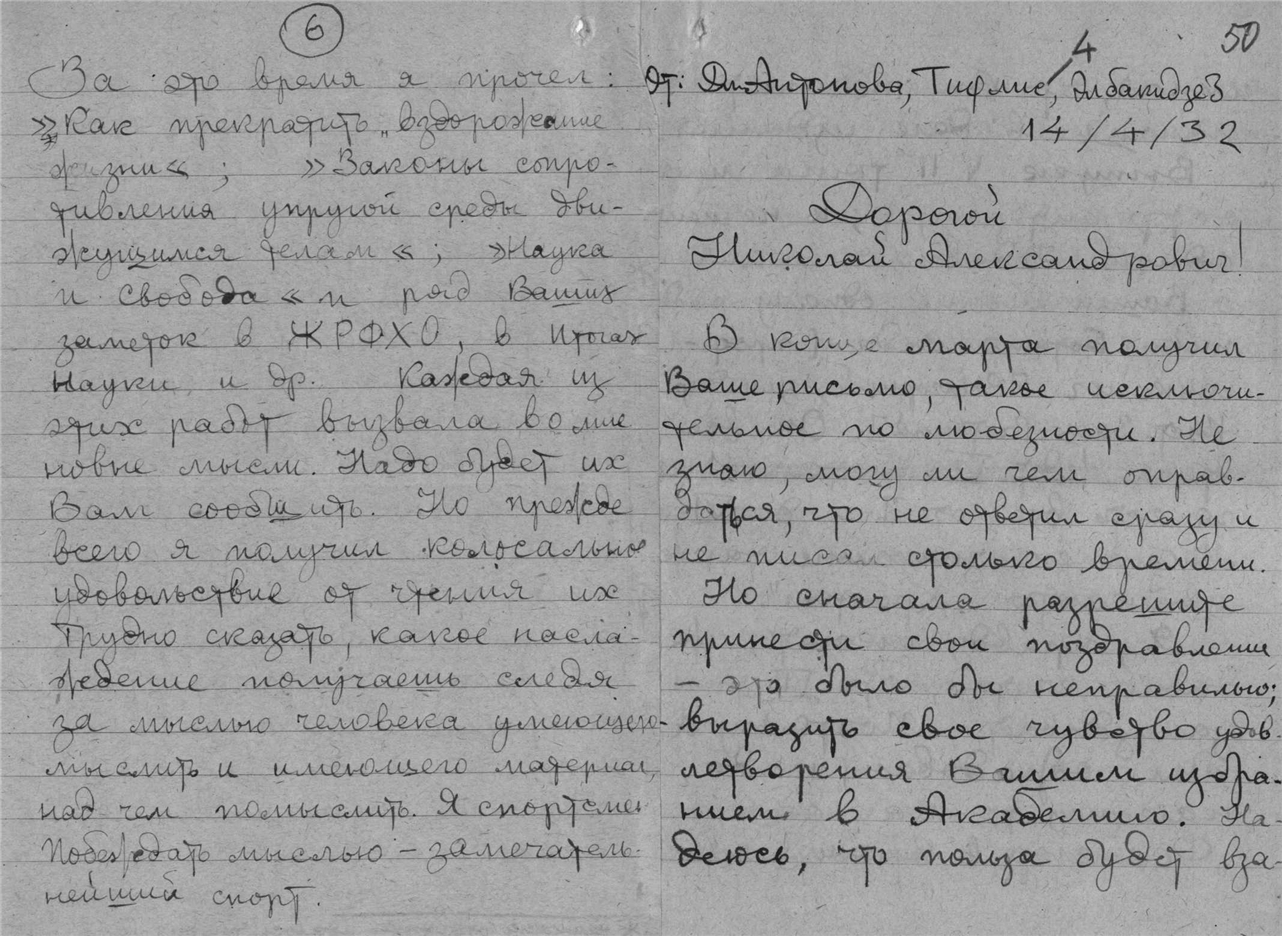 6
За это время я прочел:
»Как прекратить „вздорожание
жизни« ; »Законы сопро-
тивления упругой среды дви-
жущимся телам« ; »Наука
и свобода« и ряд Ваших
заметок в ЖРФХО, в Итогах
Науки и др. Каждая из
этих работ вызвала во мне
новые мысли. Надо будет их
Вам сообщить. Но прежде
всего я получил колосальное
удовольствие от чтения их
Трудно сказать, какое насла-
ждение получаешь следя
за мыслью человека умеющего
мыслить и имеющего материал,
над чем помыслить. Я спортсмен
Побеждать мыслью – замечатель-
нейший спорт.
50
от: Дм. Антонова, Тифлис, Элбакидзе 3
4
14/4/32
Дорогой
Николай Александрович!
В конце марта получил
Ваше письмо, такое исключи-
тельное по любезности. Не
знаю, могу ли чем оправ-
даться, что не ответил сразу и
не писал столько времени.
Но сначала разрешите
принести свои поздравления
– это было бы неправильно;
выразить свое чувство удов-
летворения Вашим избра-
нием в Академию. На-
деюсь, что польза будет вза-